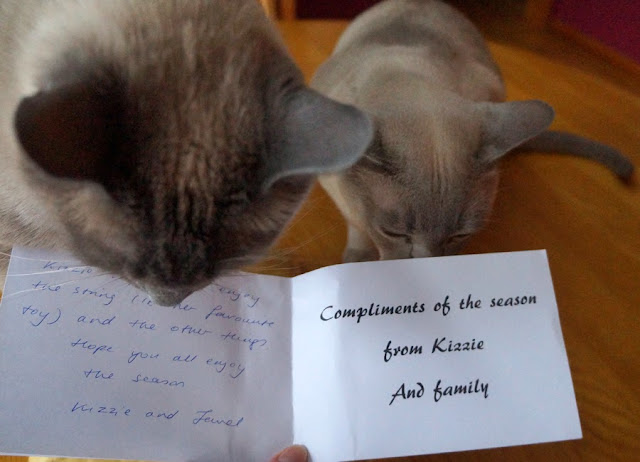 Kizzie enjoy
the string (ie her favourite
toy) and the other things
Hope you all enjoy
the season
Kizzie and Jewel
Compliments of the season
from Kizzie
And family